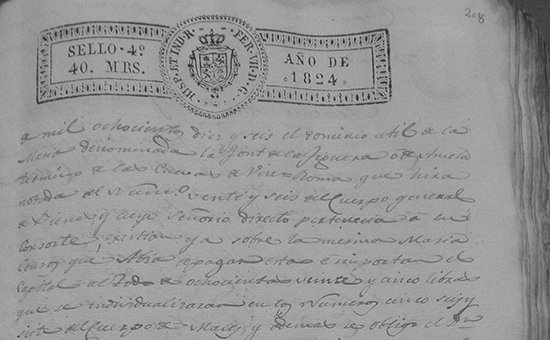 208
SELLO 4º
40. MRS.
HISP. ET IND. R. FER. VII. D. G.
AÑO DE
1824.
a mil ochocientos diez y seis el dominio util de la
Masia denominada la Font de la Figuera o de
termino de las Cuevas de Vin-Roma que hira
notada al Num.º veinte y seis del Cuerpo general
de Bienes y cuyo Señorio directo pertenecia á su
Consorte, existian ya sobre la mesma Masia
Censos que Abia apagar estas é importan el
Capital al todo de ochocientas veinte y cinco libras
que se individualizaran en los Numeros cinco seis y
siete del Cuerpo de y ademas se obligo el